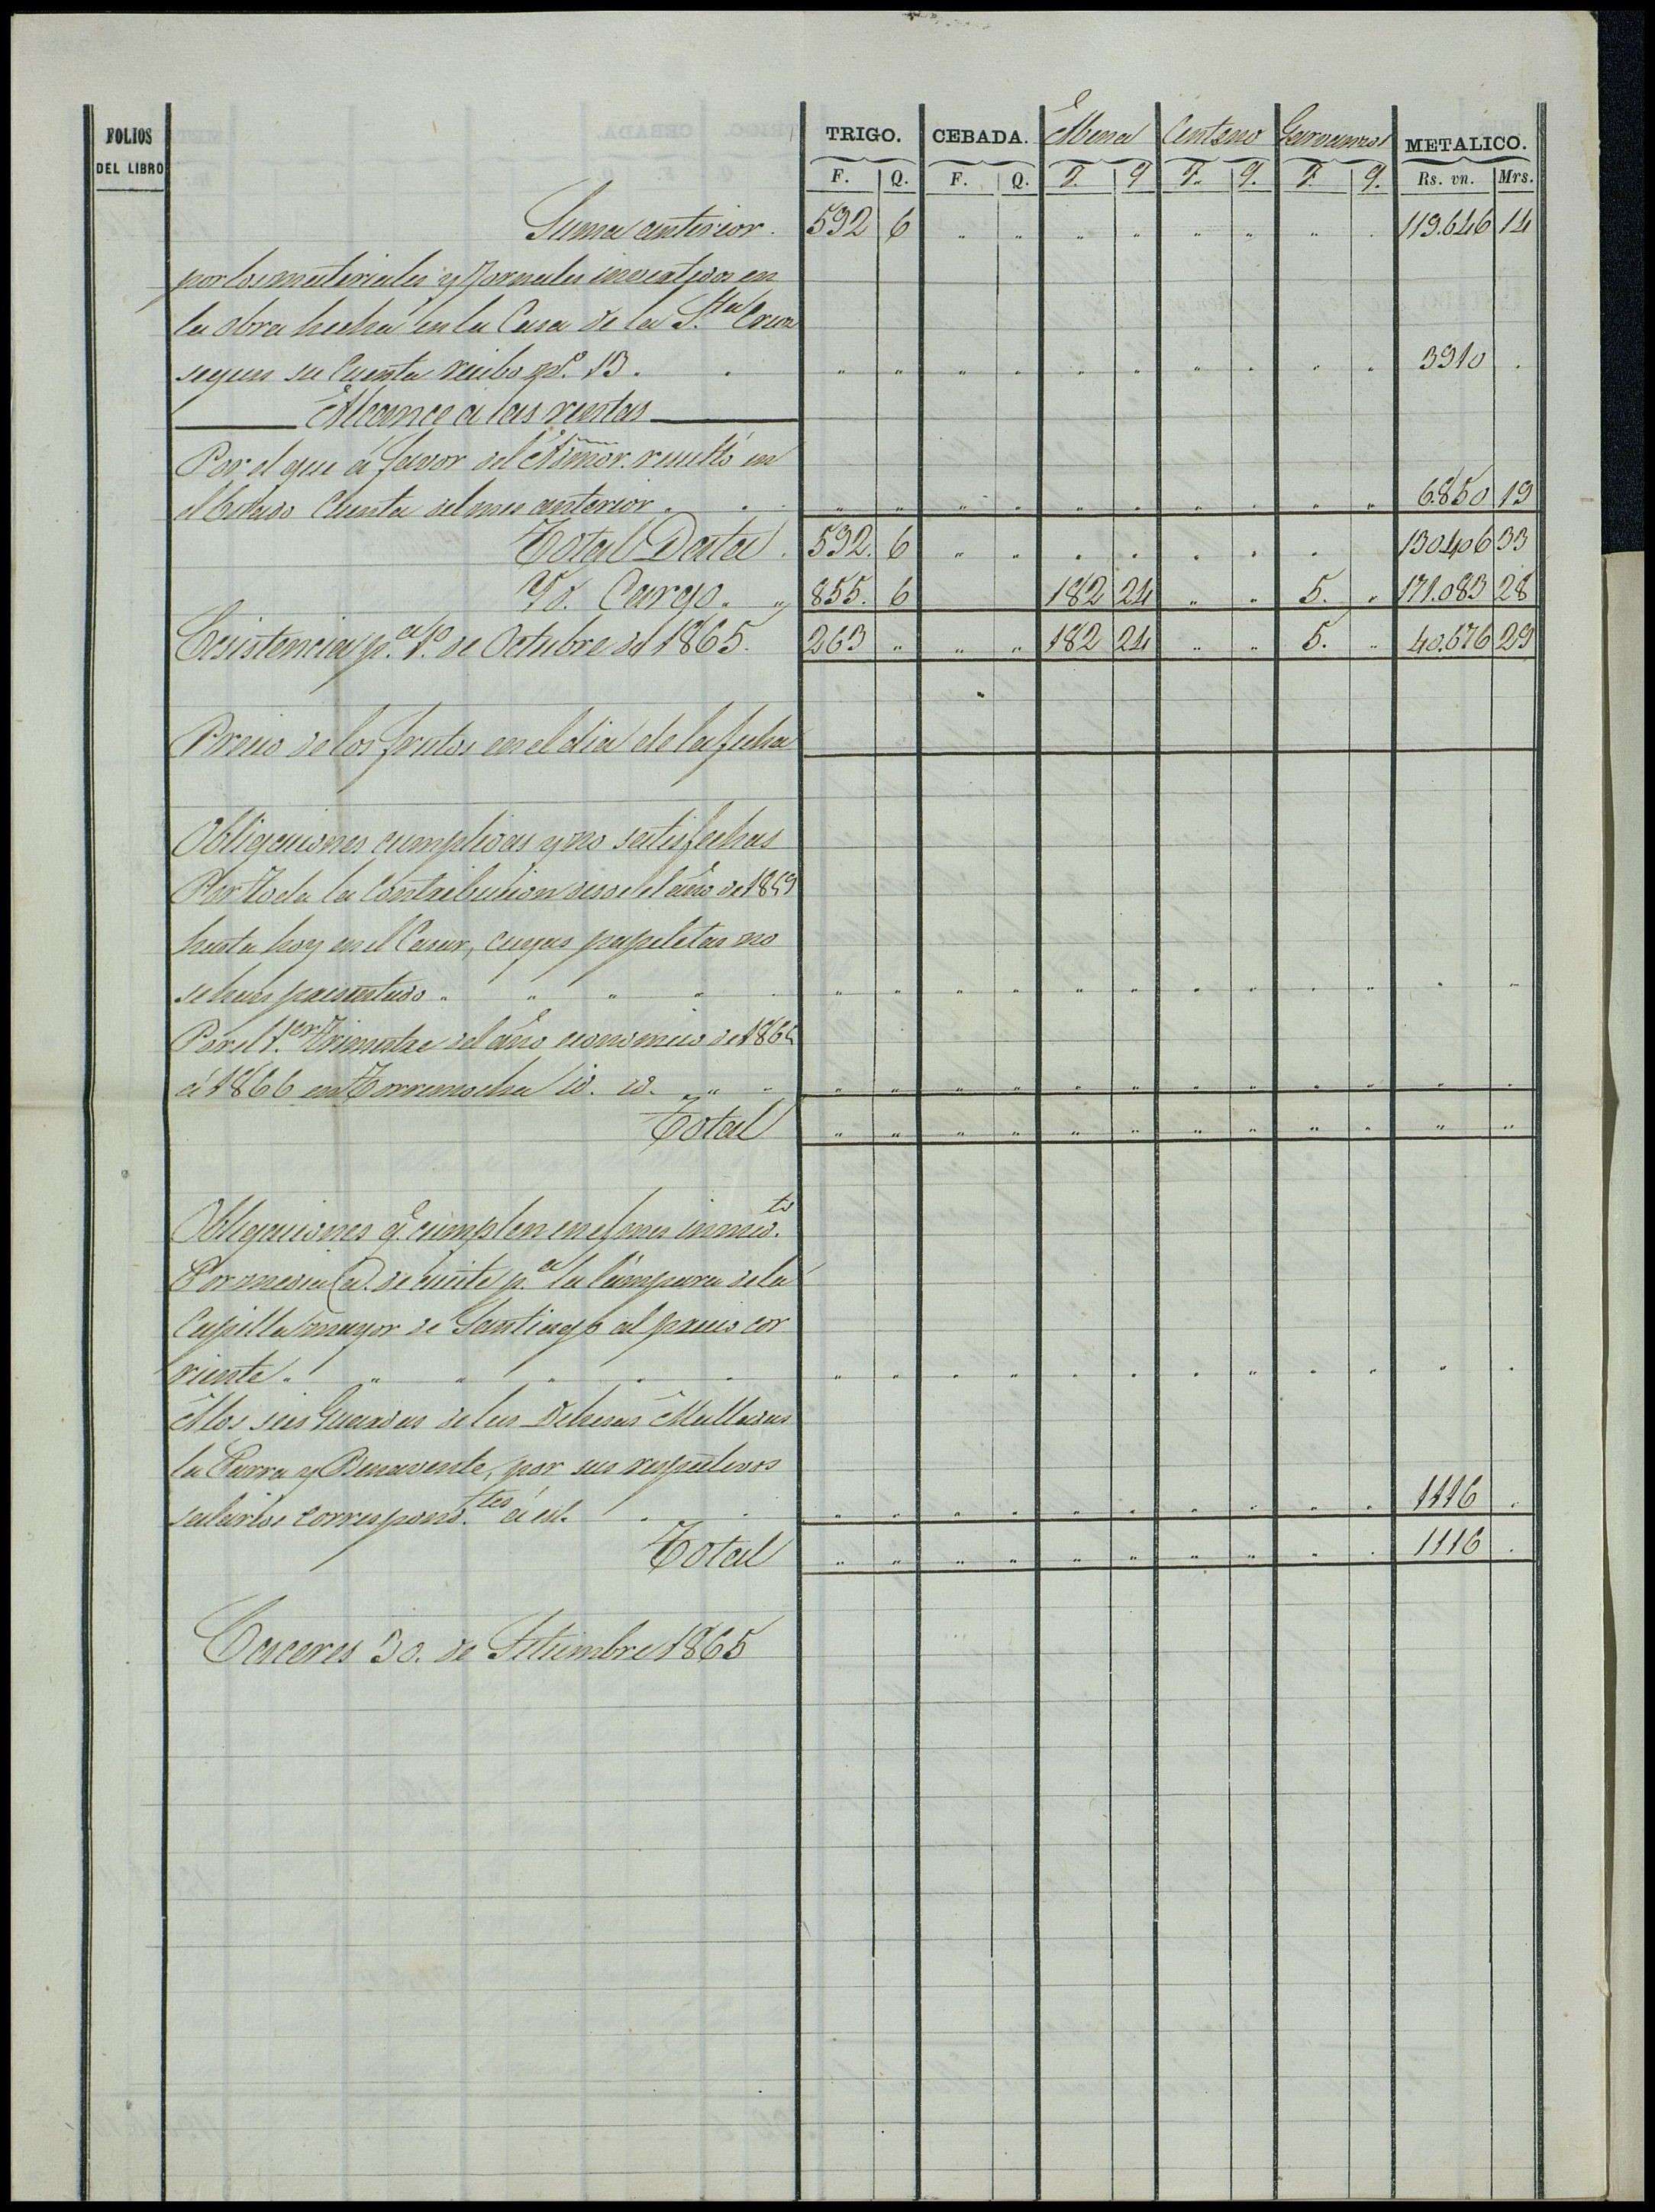 FOLIOS DEL LIBRO
TRIGO. CEBADA. Abena Centeno Garvanzos METALICO.
F. Q. F. Q. F. Q F. Q. F. Q. Rs. vn. Mrs.
Suma anterior. 592 6 " " " " " " " . 119.646 14
por los materiales y Jornales invertidos en
la obra hecha en la Casa de la S.ta Cruz
segun su Cuenta recibo nº. 13. . " " " " " " " " " " 3910 .
Alcance a las rentas
Por el que á favor del Admor. resultó en
el Estado Cuenta del mes anterior. . . " " " " " " " " " " 6.850 19
Total Data. 592. 6 " . . . . . . 130406 33
Yd. Cargo. " 855. 6 182 24 " " 5. " 171.083 28
Ecsistencia p.a 1º. de Octubre de 1865. 263 " " " 182 24 " " 5. " 40.676 29
Precio de los frutos en el dia de la fecha
Obligaciones cumplidas y no satisfechas
Por toda la Contribucion desde el año de 1859
hasta hoy en el Casar, cuyas papeletas no
se han presentado " " " " . " " " " " " " " . " . "
Por el 1.er Trimestre del año economico de 1865
á 1866 en Torremocha id. id. " " " " " " " " " " . " . .
Total " " " " " " " " " " " "
Obligaciones q.e cumplen en el mes inmed.to
Por media @. de aceite p.a la lámpara de la
Capilla mayor de Santiago al precio cor
riente " " " " . . " " . " . . . " . . . .
A los seis Guardas de las Dehesas Mulladas
la Parra y Benavente, por sus respectivos
salarios correspond.tes á id. . . " " " " " . . . . . 1116 .
Total " " " " " " " " . . 1116 .
Caceres 30. de Setiembre 1865